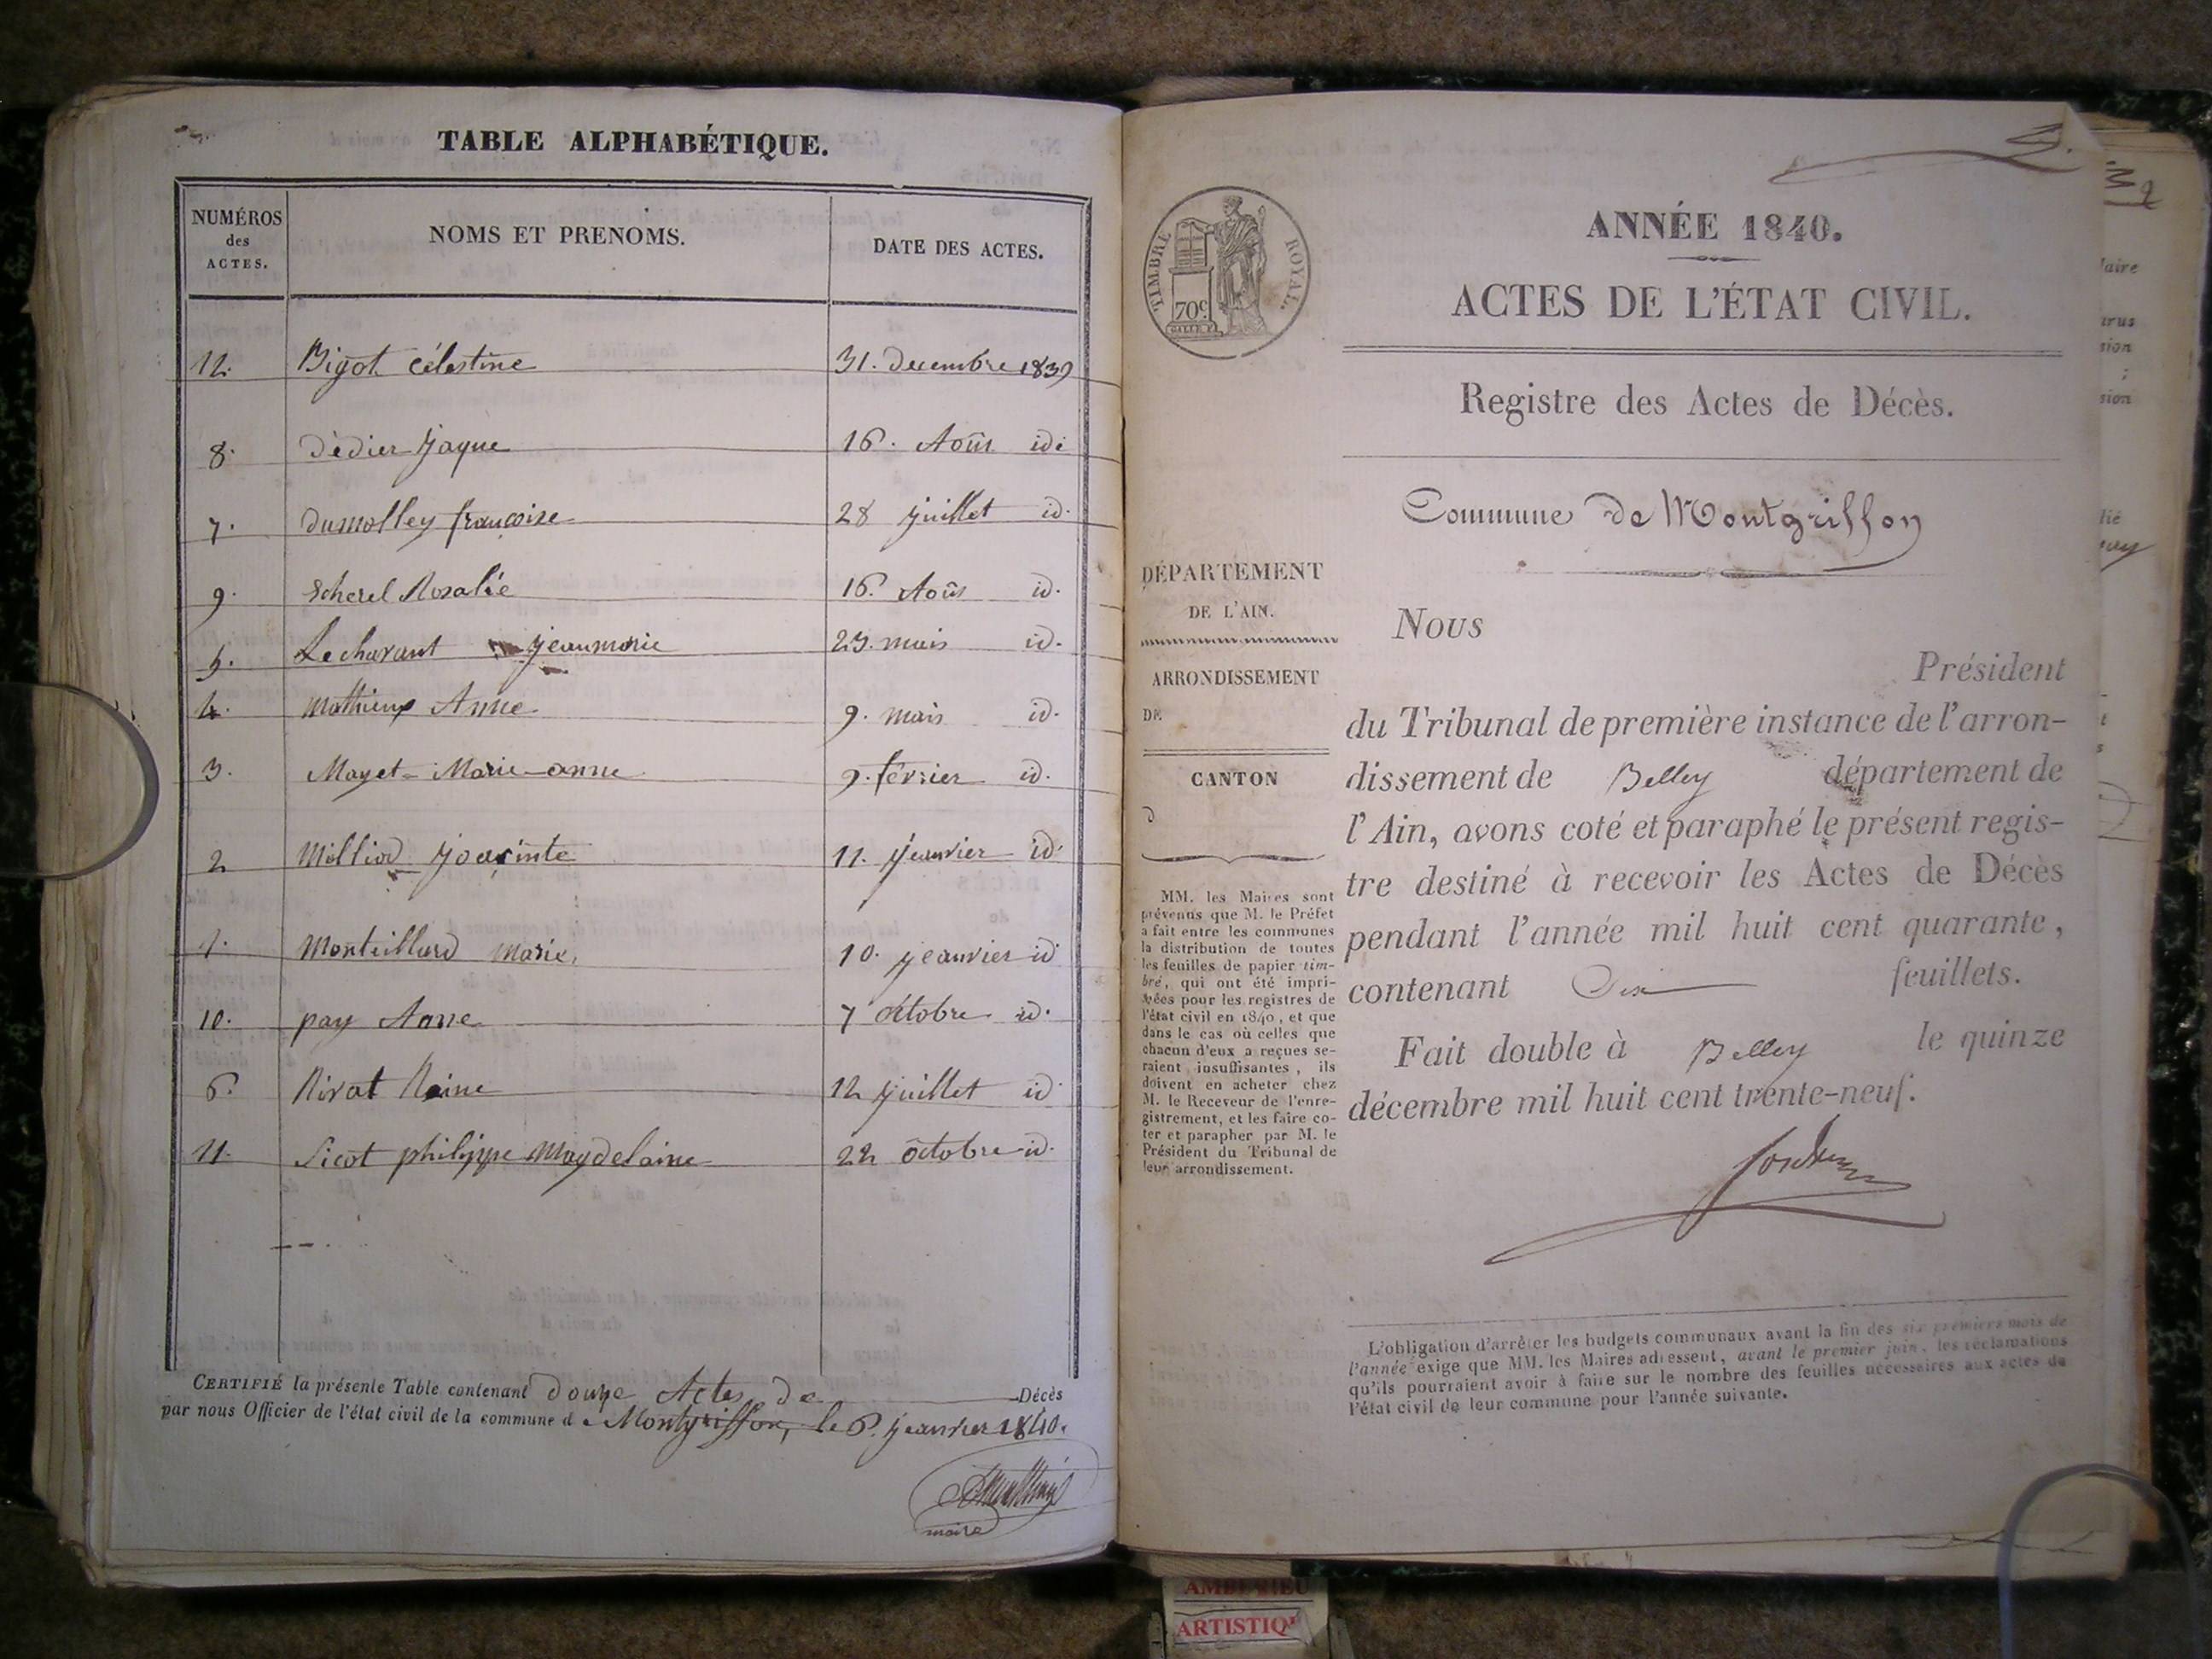 TABLE ALPHABÉTIQUE.
NUMÉROS des ACTES. NOMS ET PRENOMS. DATE DES ACTES.
12. Bigot Célestine 31. decembre 1839
8. Dédier Jaque 16. Août id.
7. Dumolley françoise 28 juillet id.
9. Scherel Rosalie 16. Août id.
5. Lecharant jeanmarie 23. mais id.
4. Mathieux Anne 9. mais id.
3. Mayet Marie-anne 9. février id.
2 Milliod 11. jeanvier id.
1. Monteillard Marie. 10. jeanvier id
10. pay Anne 7 Octobre id.
6. Rivat Reine 12 juillet id
11. Sicot philippe Magdelaine 22 octobre id.
CERTIFIÉ la présente Table contenant douze Actes de Décès
par nous Officier de l'état civil de la commune de Montgriffon, le 6. jeanvier 1840.
maire
TIMBRE ROYAL.
70c.
ANNÉE 1840.
ACTES DE L'ÉTAT CIVIL.
Registre des Actes de Décès.
Commune de Montgriffon
DÉPARTEMENT
DE L'AIN.
ARRONDISSEMENT
DE
CANTON
D
MM. les Maires sont
prévenus que M. le Préfet
a fait entre les communes
la distribution de toutes
les feuilles de papier tim-
bré, qui ont été impri-
mées pour les registres de
l'état civil en 1840, et que
dans le cas où celles que
chacun d'eux a reçues se-
raient insuffisantes, ils
doivent en acheter chez
M. le Receveur de l'enre-
gistrement, et les faire co-
ter et parapher par M. le
Président du Tribunal de
leur arrondissement.
Nous
Président
du Tribunal de première instance de l'arron-
dissement de Belley département de
l'Ain, avons coté et paraphé le présent regis-
tre destiné à recevoir les Actes de Décès
pendant l'année mil huit cent quarante,
contenant Dix feuillets.
Fait double à Belley le quinze
décembre mil huit cent trente-neuf.
L'obligation d'arrêter les budgets communaux avant la fin des six premiers mois de
l'année exige que MM. les Maires adressent, avant le premier juin, les réclamations
qu'ils pourraient avoir à faire sur le nombre des feuilles nécessaires aux actes de
l'état civil de leur commune pour l'année suivante.
laire
sion
sion
AMBERIEU
ARTISTIQ